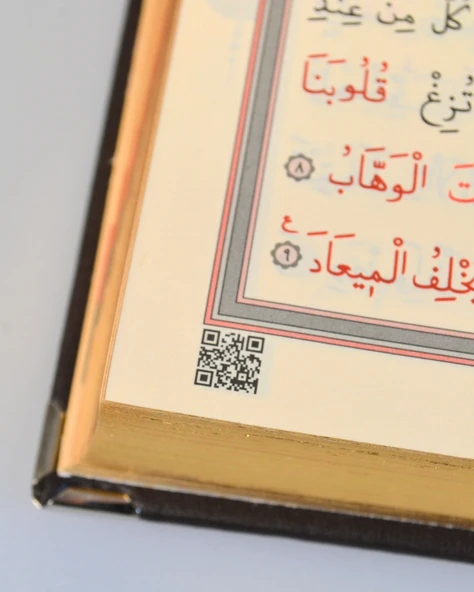 كُلٌّ مِنْ عِنْدِ
تُزِغْ قُلُوبَنَا
الْوَهَّابُ ٨
يُخْلِفُ الْمٖيعَادَ ع ٩